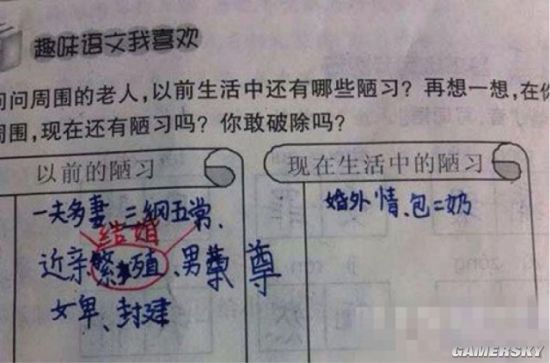 趣味语文我喜欢
问问周围的老人,以前生活中还有哪些陋习?再想一想,在你
周围,现在还有陋习吗?你敢破除吗?
以前的陋习
一夫多妻 三綱五常、
结婚
近亲繁殖、男尊
女卑、封建
现在生活中的陋习
婚外情、包二奶
GAMERSKY